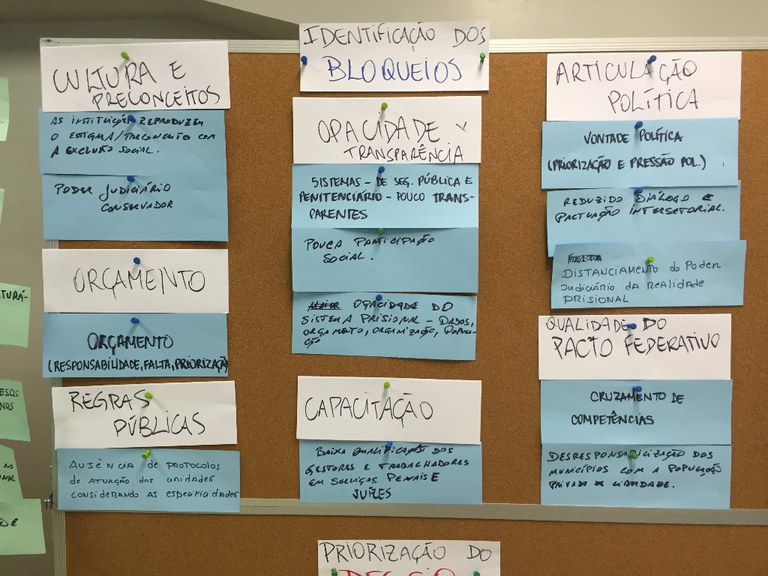 IDENTIFICAÇÃO DOS
BLOQUEIOS
CULTURA E
PRECONCEITOS
AS INSTITUIÇÕES REPRODUZEM
O ESTIGMA/PRECONCEITO COM
A EXCLUSÃO SOCIAL.
PODER JUDICIÁRIO
CONSERVADOR
ORÇAMENTO
ORÇAMENTO
(RESPONSABILIDADE, FALTA, PRIORIZAÇÃO)
REGRAS
PÚBLICAS
AUSÊNCIA DE PROTOCOLOS
DE ATUAÇÃO DAS UNIDADES
CONSIDERANDO AS ESPECIFICIDADES
OPACIDADE
TRANSPARÊNCIA
SISTEMAS - DE SEG. PÚBLICA E
PENITENCIÁRIO - POUCO TRANS-
PARENTES
POUCA PARTICIPAÇÃO
SOCIAL.
OPACIDADE DO
SISTEMA PRISIONAL - DADOS,
ORÇAMENTO, ORGANIZAÇÃO,
CAPACITAÇÃO
BAIXA QUALIFICAÇÃO DOS
GESTORES E TRABALHADORES
EM SERVIÇOS PENAIS E
JUÍZES
ARTICULAÇÃO
POLÍTICA
VONTADE POLÍTICA
(PRIORIZAÇÃO E PRESSÃO POL.)
REDUZIDO DIÁLOGO E
PACTUAÇÃO INTERSETORIAL.
DISTANCIAMENTO do PODER
JUDICIÁRIO DA REALIDADE
PRISIONAL
QUALIDADE DO
PACTO FEDERATIVO
CRUZAMENTO DE
COMPETÊNCIAS
DESRESPONSABILIZAÇÃO DOS
MUNICÍPIOS COM A POPULAÇÃO
PRIVADA DE LIBERDADE.
PRIORIZAÇÃO DO